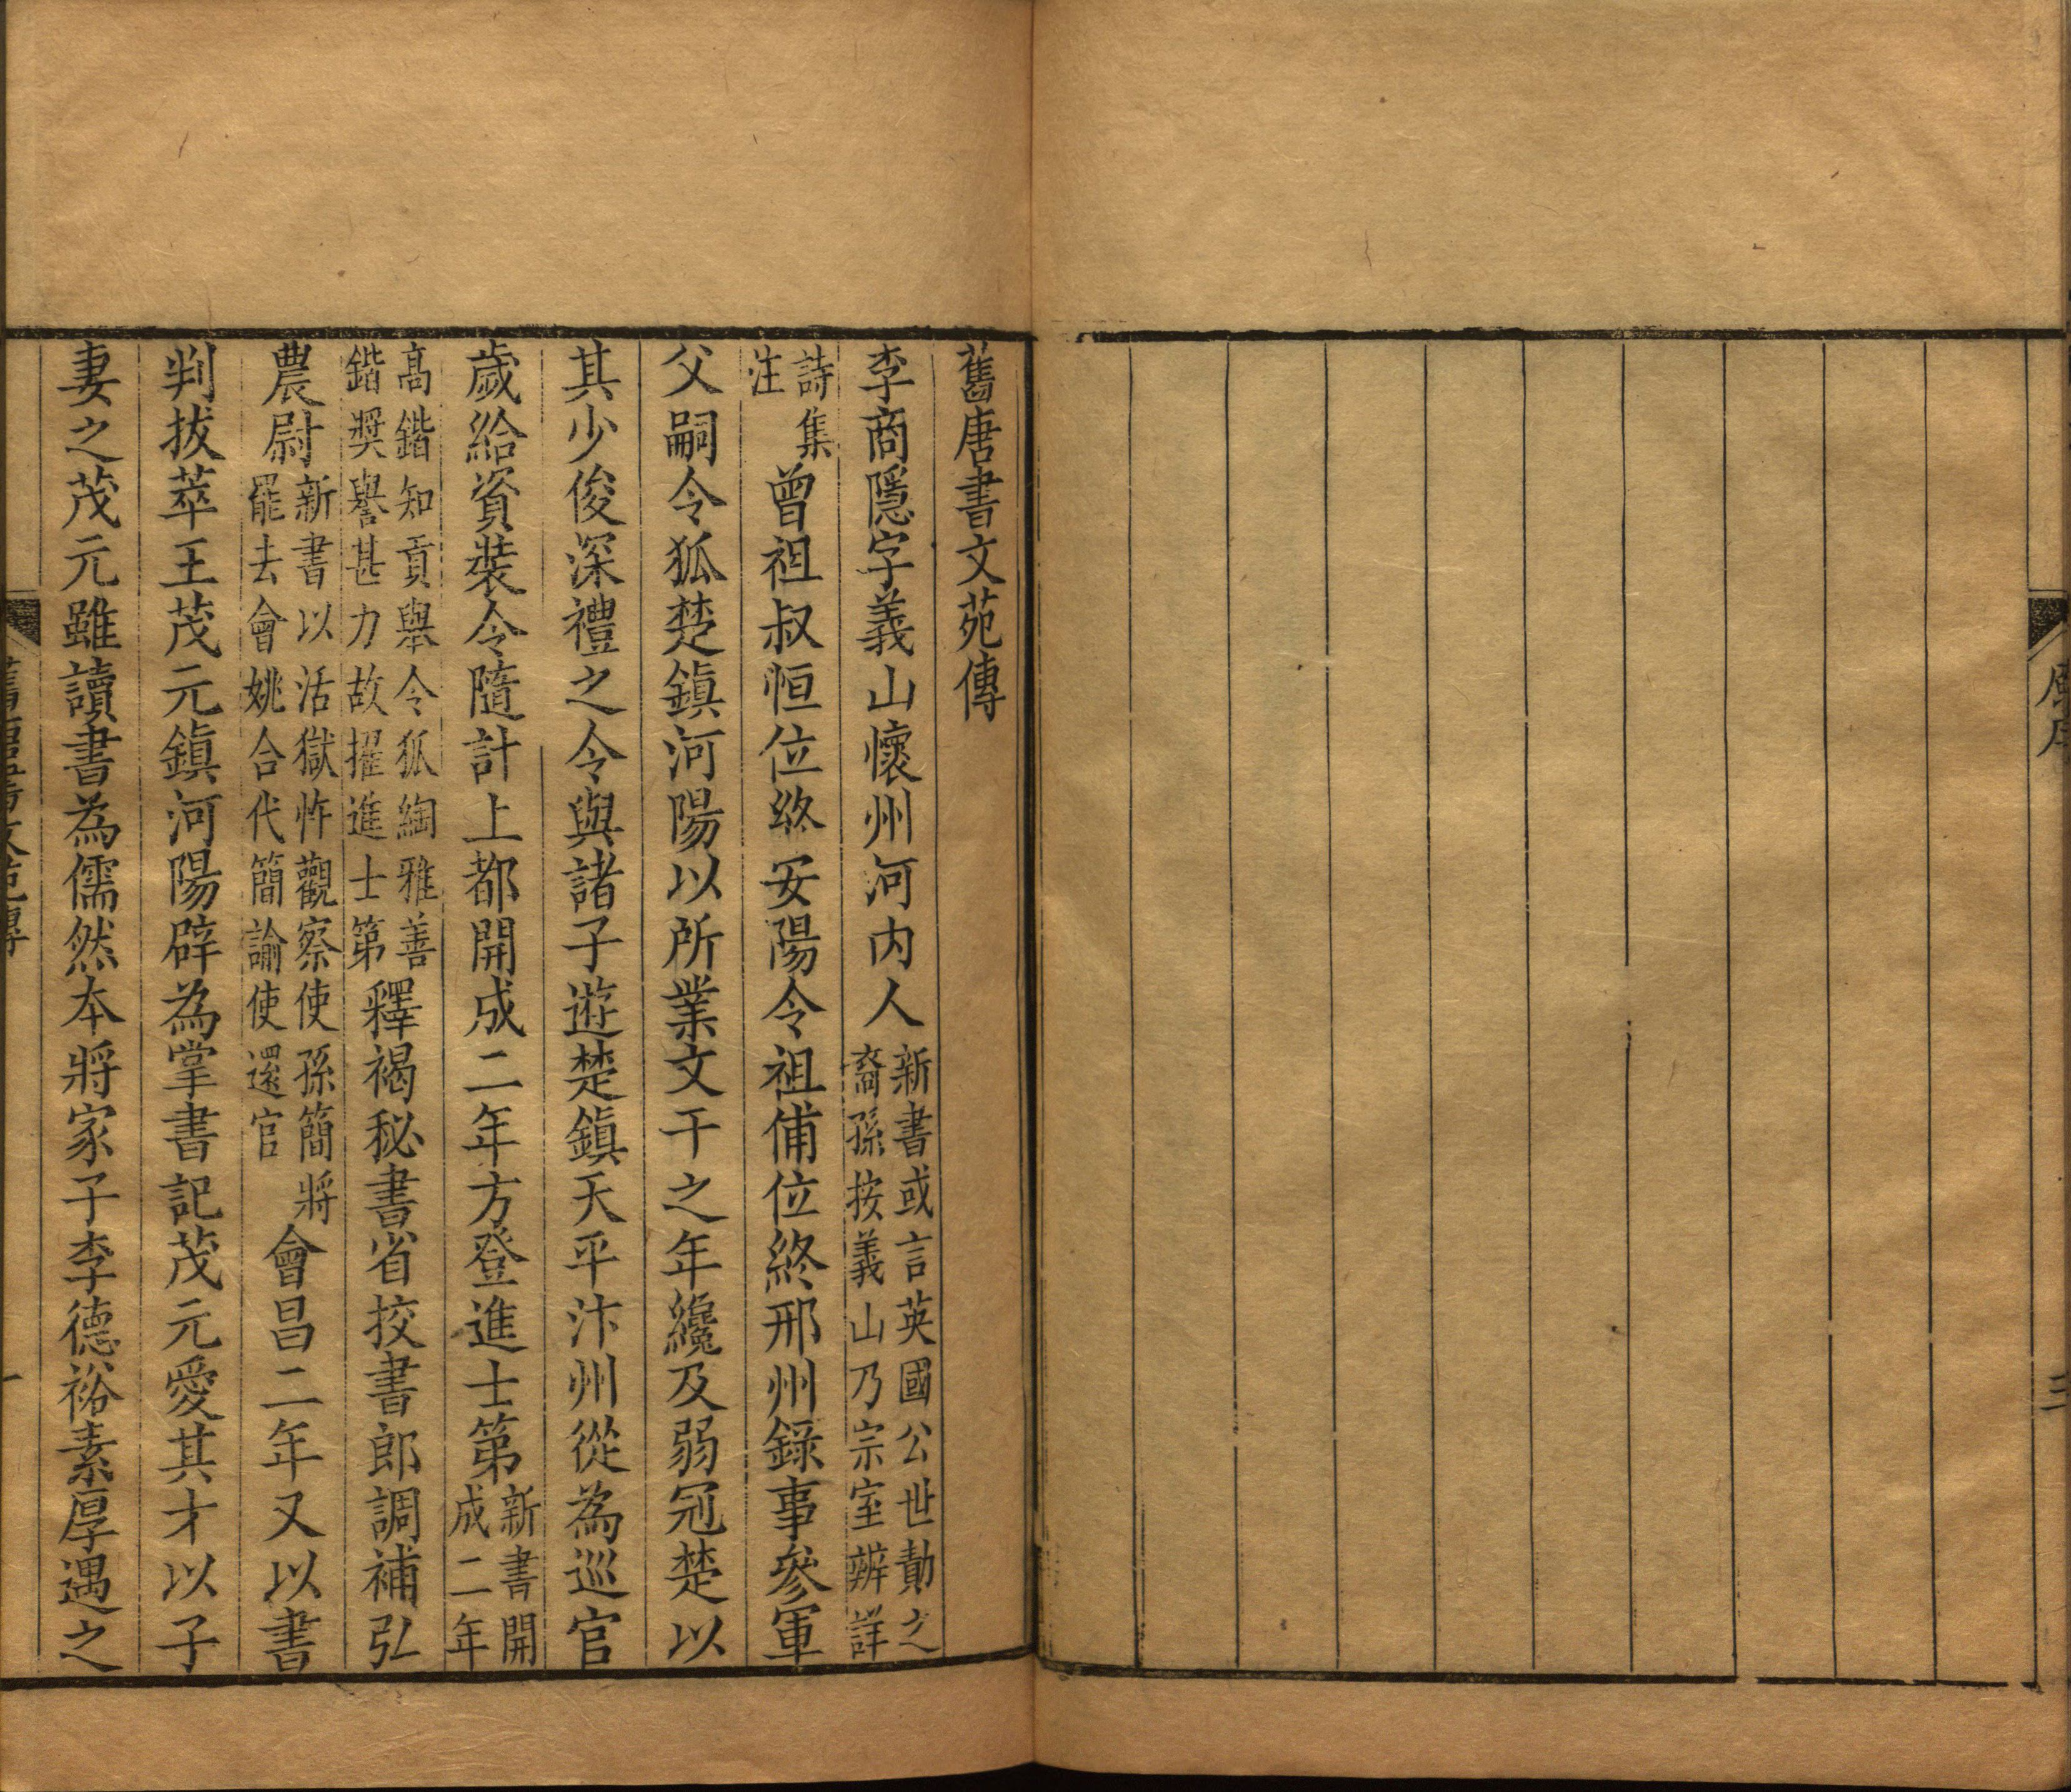 舊唐書文苑傳
李商隱字義山懷州河內人新書或言英國公世勣之裔孫按義山乃宗室辨詳
詩集注曾祖叔恒位終安陽令祖俌位終邢州錄事參軍
父嗣令狐楚鎮河陽以所業文干之年纔及弱冠楚以
其少俊深禮之令與諸子遊楚鎮天平汴州從為巡官
歲給資裝令隨計上都開成二年方登進士第新書開成二年
高鍇知貢舉令狐綯雅善鍇獎譽甚力故擢進士第釋褐秘書省挍書郎調補弘
農尉新書以活獄忤觀察使孫簡將罷去會姚合代簡諭使還官會昌二年又以書
判拔萃王茂元鎮河陽辟為掌書記茂元愛其才以子
妻之茂元雖讀書為儒然本將家子李德裕素厚遇之
舊唐書文苑傳
一